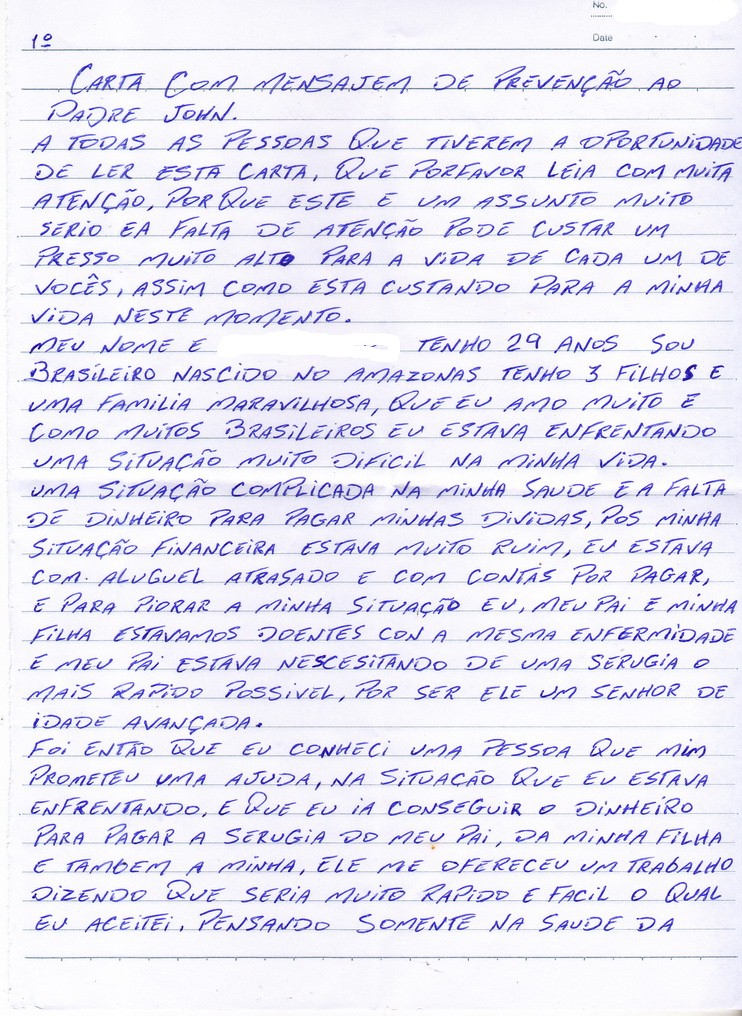 No.
Date
1º
CARTA COM MENSAJEM DE PREVENÇÃO AO
PADRE JOHN.
A TODAS AS PESSOAS QUE TIVEREM A OPORTUNIDADE
DE LER ESTA CARTA, QUE PORFAVOR LEIA COM MUITA
ATENÇÃO, PORQUE ESTE E UM ASSUNTO MUITO
SERIO EA FALTA DE ATENÇÃO PODE CUSTAR UM
PRESSO MUITO ALTO PARA A VIDA DE CADA UM DE
VOCÊS, ASSIM COMO ESTA CUSTANDO PARA A MINHA
VIDA NESTE MOMENTO.
MEU NOME E TENHO 29 ANOS SOU
BRASILEIRO NASCIDO NO AMAZONAS TENHO 3 FILHOS E
UMA FAMILIA MARAVILHOSA, QUE EU AMO MUITO E
COMO MUITOS BRASILEIROS EU ESTAVA ENFRENTANDO
UMA SITUAÇÃO MUITO DIFICIL NA MINHA VIDA.
UMA SITUAÇÃO COMPLICADA NA MINHA SAUDE E A FALTA
DE DINHEIRO PARA PAGAR MINHAS DIVIDAS, POS MINHA
SITUAÇÃO FINANCEIRA ESTAVA MUITO RUIM, EU ESTAVA
COM. ALUGUEL ATRASADO E COM CONTAS POR PAGAR,
E PARA PIORAR A MINHA SITUAÇÃO EU, MEU PAI E MINHA
FILHA ESTAVAMOS DOENTES CON A MESMA ENFERMIDADE
E MEU PAI ESTAVA NESCESITANDO DE UMA SERUGIA O
MAIS RAPIDO POSSIVEL, POR SER ELE UM SENHOR DE
IDADE AVANÇADA.
FOI ENTÃO QUE EU CONHECI UMA PESSOA QUE MIM
PROMETEU UMA AJUDA, NA SITUAÇÃO QUE EU ESTAVA
ENFRENTANDO. E QUE EU IA CONSEGUIR O DINHEIRO
PARA PAGAR A SERUGIA DO MEU PAI, DA MINHA FILHA
E TAMBEM A MINHA, ELE ME OFERECEU UM TRABALHO
DIZENDO QUE SERIA MUITO RAPIDO E FACIL O QUAL
EU ACEITEI, PENSANDO SOMENTE NA SAUDE DA